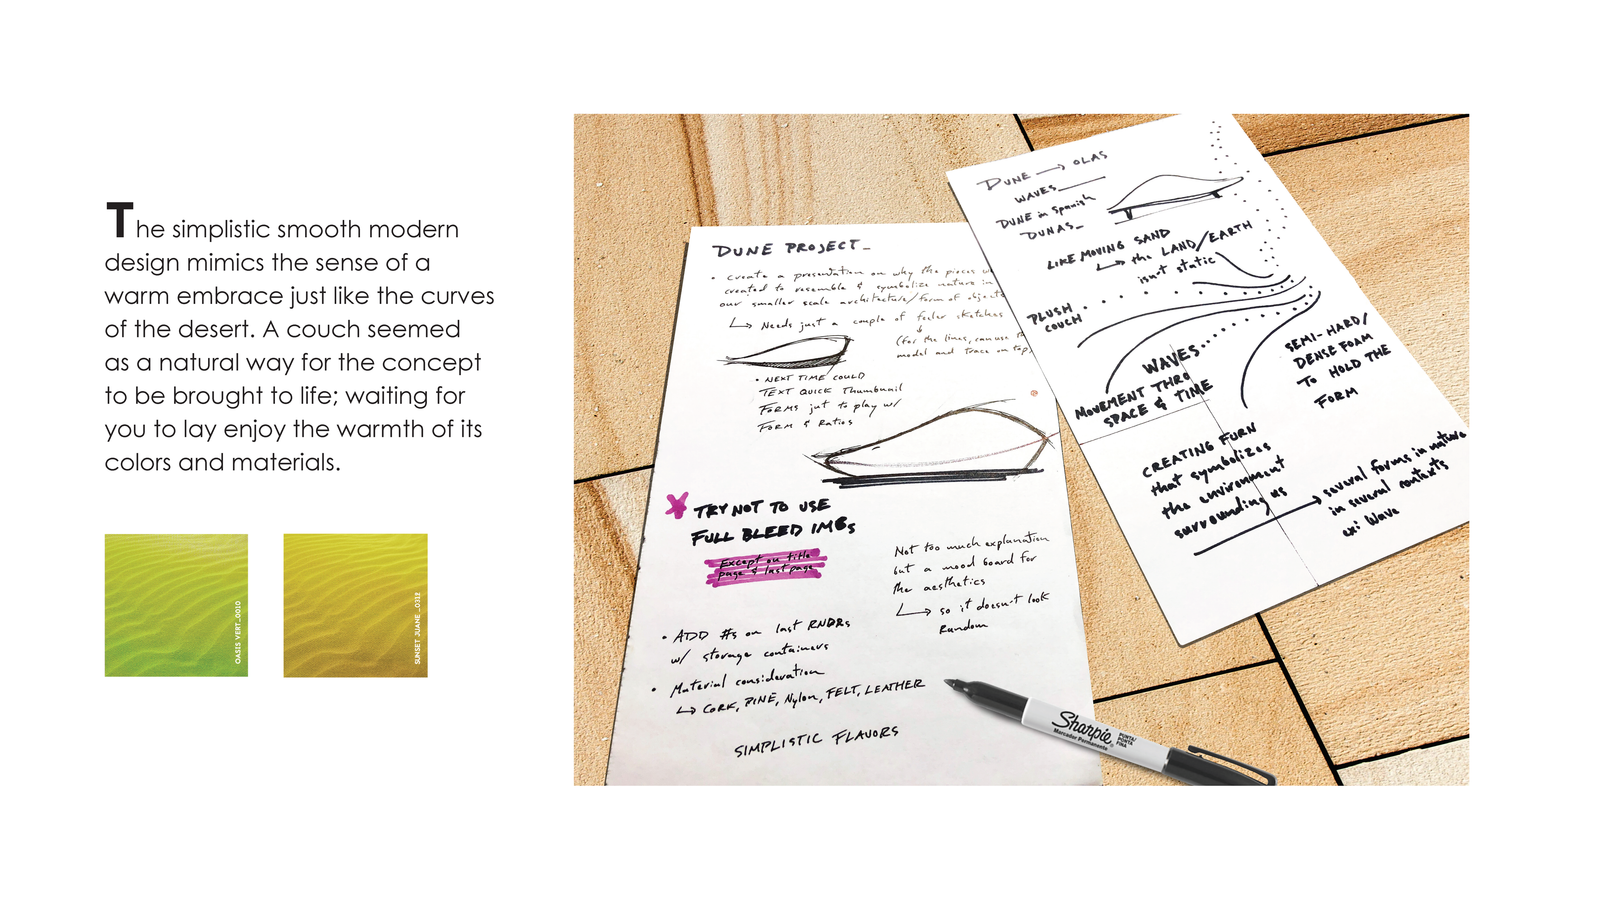 The simplistic smooth modern
design mimics the sense of a
warm embrace just like the curves
of the desert. A couch seemed
as a natural way for the concept
to be brought to life; waiting for
you to lay enjoy the warmth of its
colors and materials.
OASIS VERT_0010
SUNSET JUANE _0312
DUNE PROJECT_
• Create a presentation on why the pieces
created to resemble & symbolize nature in
our smaller scale architecture/form of objects
↳ Needs just a couple of feeler sketches
(for the lines, can use
model and trace on top)
• NEXT TIME COULD
TEXT QUICK Thumbnail
FORMS just to play w/
FORM & Ratios
TRY NOT TO USE
FULL BLEED IMGs
Except on title
page & last page
Not too much explanation
but a mood board for
the aesthetics
↳ so it doesn't look
Random
• ADD #s on last RNDRs
w/ storage containers
• Material consideration
↳ CORK, PINE, Nylon, FELT, LEATHER
SIMPLISTIC FLAVORS
DUNE → OLAS
WAVES
DUNE in Spanish
DUNAS_
LIKE MOVING SAND
↳ the LAND/EARTH
isn't static
PLUSH
COUCH
WAVES
MOVEMENT THRO
SPACE & TIME
SEMI-HARD/
DENSE FOAM
TO HOLD THE
FORM
CREATING FURN
that symbolizes
the environment
surrounding us
several forms in nature
in several contexts
ex: Wave
Sharpie
Marcador Permanente
PUNTA/
PONTA
FINA